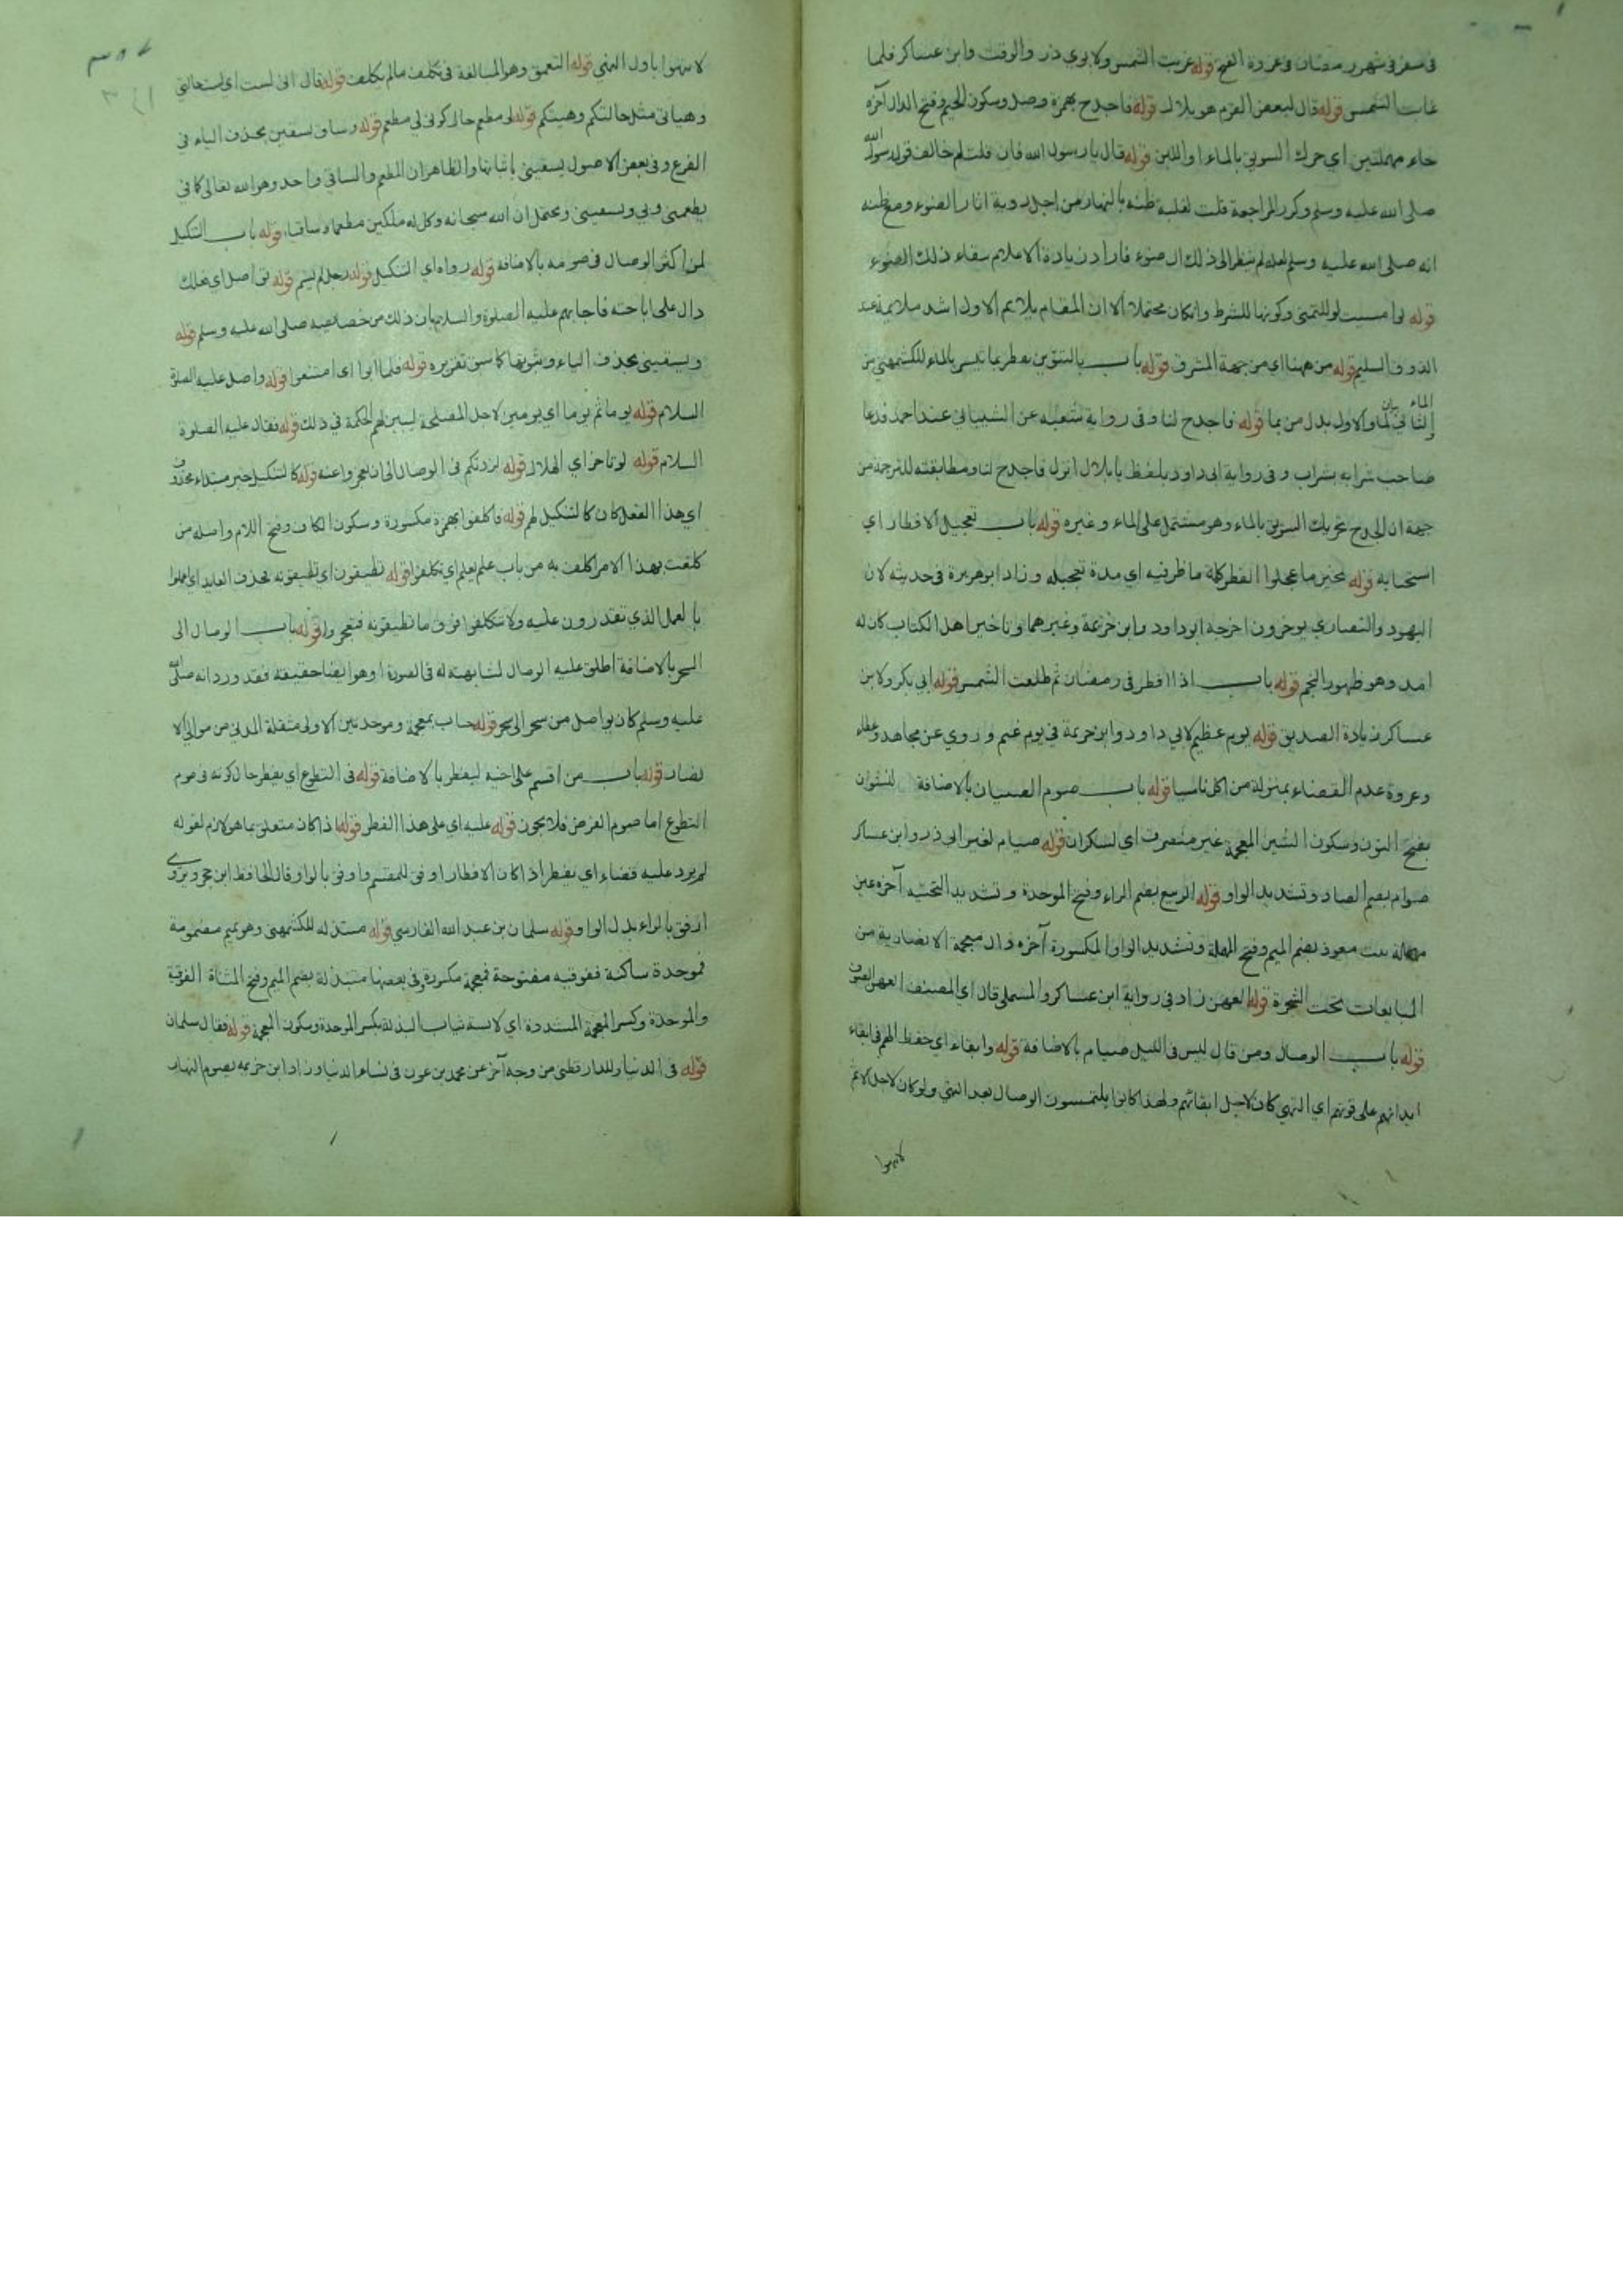 في سفر في شهر رمضان في غزوة الفتح قوله غربت الشمس ولابوي ذر والوقت وابن عساكر فلما
غابت الشمس قوله قال لبعض القوم هو بلال قوله فاجدح بهمزة وصل وسكون الجيم وفتح الدال آخره
حاء مهملتين اي حرك السويق بالماء او اللبن قوله قال يا رسول الله فان قلت لم خالف قوله رسول الله
صلى الله عليه وسلم وكرر المراجعة قلت لغلبة ظنه بالنهار من اجل روية اثار الضوء ومع ظنه
انه صلى الله عليه وسلم لعله لم ينظر الى ذلك الضوء فاراد زيادة الاعلام ببقاء ذلك الضوء
قوله لو امسيت لو للتمني وكونها للشرط وان كان محتملا الا ان المقام يلايم الاول اشد ملايمة عند
الذوق السليم قوله من ههنا اي من جهة المشرق قوله باب بالتنوين يفطر بما تيسر بالماء للكشمهني من
الماء بيان
الثاني لما والاول بدل من بما قوله فاجدح لنا وفي رواية شعبة عن الشيباني عند احمد فدعا
صاحب شرابه بشراب وفي رواية ابي داود بلفظ يا بلال انزل فاجدح لنا ومطابقته للترجمة من
جهة ان الجدح تحريك السويق بالماء وهو مشتمل على الماء وغيره قوله باب تعجيل الافطار اي
استحبابه قوله بخير ما عجلوا الفطر كلمة ما ظرفية اي مدة تعجيله وزاد ابو هريرة في حديثه لان
اليهود والنصاري يوخرون اخرجه ابو داود وابن خزيمة وغيرهما وتاخير اهل الكتاب كان له
امد وهو ظهور النجم قوله باب اذا افطر في رمضان ثم طلعت الشمس قوله ابي بكر ولابن
عساكر زيادة الصديق قوله يوم عظيم لابي داود وابن خزيمة في يوم غيم وروي عن مجاهد وعطاء
وعروة عدم القضاء بمنزلة من اكل ناسيا قوله باب صوم الصبيان بالاضافة لنشوان
بفتح النون وسكون الشين المعجمة غير منصرف اي لسكران قوله صيام لغير ابي ذر وابن عساكر
صوام بضم الصاد وتشديد الواو قوله الربيع بضم الراء وفتح الموحدة وتشديد التحتية آخره عين
مهملة بنت معوذ بضم الميم وفتح المهلة وتشديد الواو المكسورة آخره ذال معجمة الانصارية من
المبايعات تحت الشجرة قوله العهن زاد في رواية ابن عساكر والمستملي قال اي المصنف العهن الصوف
قوله باب الوصال ومن قال ليس في الليل صيام بالاضافة قوله وابقاء اي حفظ لهم في ابقاء
ابدانهم على قوتهم اي النهي كان لاجل ابقائهم ولهذا كانوا يلتمسون الوصال بعد النهي ولو كان لاجل الاثم
لانتهوا
لانتهوا باول النهي قوله التعمق وهو المبالغة في تكلف مالم يكلف قوله قال اني لست اي ليست حالتي
وهياتي مثل حالتكم وهيئتكم قوله لي مطعم حال كوني لي مطعم قوله وساق يسقين بحذف الياء في
الفرع وفي بعض الاصول يسقيني باثباتها والظاهر ان المطعم والساقي واحد وهو الله تعالى كما في
يطعمني ربي ويسقيني ويحتمل ان الله سبحانه وكل له ملكين مطعما وساقيا قوله باب التنكيل
لمن اكثر الوصال في صومه بالاضافة قوله رواه اي التنكيل قوله رجل لم يسم
دال على اباحته فاجابهم عليه الصلوة والسلام بان ذلك من خصايصه صلى الله عليه وسلم قوله
ويسقيني بحذف الياء وثبوتها كما سبق تقريره قوله فلما ابوا اي امتنعوا قوله واصل عليه الصلوة
السلام قوله يوما ثم يوما اي يومين لاجل المصلحة ليبين لهم الحكمة في ذلك قوله فقال عليه الصلوة
السلام قوله لو تاخر اي الهلال قوله لزدتكم في الوصال الى ان تعجزوا عنه قوله كالتنكيل خبر مبتداء محذوف
اي هذا الفعل كان كالتنكيل لهم قوله فاكلفوا بهمزة مكسورة وسكون الكاف وفتح اللام واصله من
كلفت بهذا الامر اكلف به من باب علم يعلم اي تكلفوا قوله تطيقون اي تطيقونه بحذف العايد اي اعملوا
بالعمل الذي تقدرون عليه ولا تتكلفوا فوق ما تطيقونه فتعجزوا قوله باب الوصال الى
السحر بالاضافة اطلق عليه الوصال لمشابهته له في الصورة او هو ايضا حقيقة فقد ورد انه صلى الله
عليه وسلم كان يواصل من سحر الى سحر قوله خباب بمعجمة وموحدتين الاولى مثقلة المدني من موالي الا
نصار قوله باب من اقسم على اخيه ليفطر بالاضافة قوله في التطوع اي يفطر حال كونه في صوم
التطوع اما صوم الفرض فلا يجوز قوله عليه اي على هذا الفطر قوله اذا كان متعلق بما هو لازم لقوله
لم ير عليه قضاء اي يفطر اذا كان الافطار اوفق للمقسم واوفق بالواو وقال الحافظ ابن حجر ويروى
ارفق بالراء بدل الواو قوله سلمان بن عبد الله الفارسي قوله متبذلة للكشمهني وهو بميم مضمومة
فموحدة ساكنة ففوقية مفتوحة فمعجمة مكسورة وفي بعضها متبذلة بضم الميم وفتح المثناة الفوقية
والموحدة وكسر المعجمة المشددة اي لابسة ثياب البذلة بكسر الموحدة وسكون المعجمة قوله فقال سلمان
قوله في الدنيا وللدارقطني من وجه آخر عن محمد بن عون في نساء الدنيا وزاد ابن خزيمة يصوم النهار